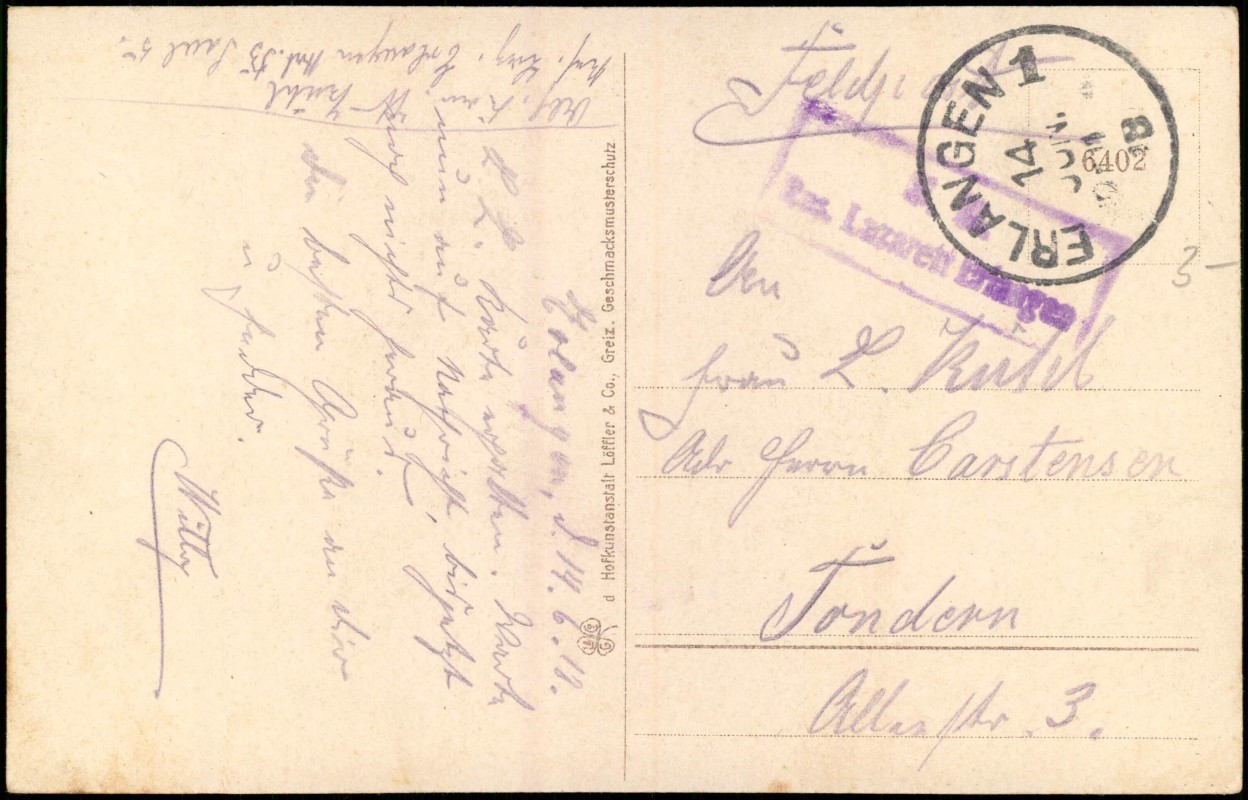 Feldpost
ERLANGEN 1
14 JUN.
18
6402
Res. Lazarett Erlangen
3-
An
Frau L. Kühl
Adr Herrn Carstensen
Tondern
Allee str. 3.
d Hofkunstanstalt Löffler & Co., Greiz. Geschmacksmusterschutz
Erlangen, d. 14.6.18.
L. L. Karte erhalten. Warte
nun auf Nachricht, bis jetzt
noch nichts heraus.
Die besten Grüße an dir
u
Willy
Kühl
Res. Laz. Erlangen